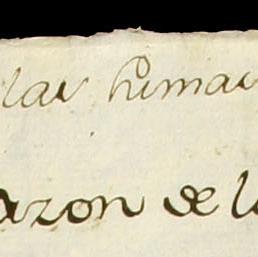 las humas
azon de l